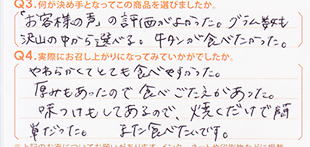 Q3.何が決め手となってこの商品を選びましたか。
「お客様の声」の評価がよかった。グラム数も
沢山の中から選べる。牛タンが食べたかった。
Q4.実際にお召し上がりになってみていかがでしたか。
やわらかくてとても食べやすかった。
厚みもあったので食べごたえがあった。
味つけもしてあるので、焼くだけで簡
単だった。 また食べたいです。